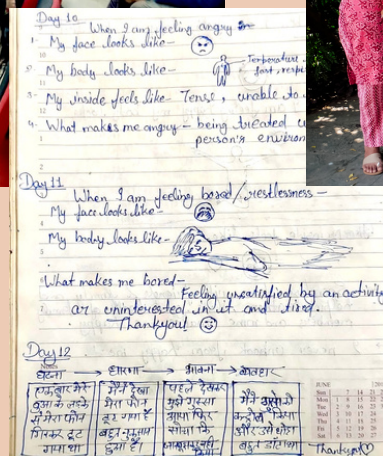 Day 10
When I am feeling angry
1. My face looks like-
2. My body looks like- Temperature
fast, respi
3. My inside feels like- Tense, unable to
4. What makes me angry- being treated u
person's environ
Day 11
When I am feeling bored/restlessness-
My face looks like-
My body looks like-
What makes me bored-
Feeling unsatisfied by an activity
or uninterested in it and tired.
Thankyou!
Day 12
घटना → धारणा → भावना → व्यवहार
एक बार मेरे
बुआ के लड़के
से मेरा फोन
गिरकर टूट
गया था
मैंने देखा
मेरा फोन
टूट गया है
बहुत नुकसान
हुआ है।
पहले देखकर
मुझे गुस्सा
आया फिर
सोचा कि
मैंने गुस्से को
कन्ट्रोल किया
और उसे थोड़ा
बहुत डांटा था
JUNE
Thankyou